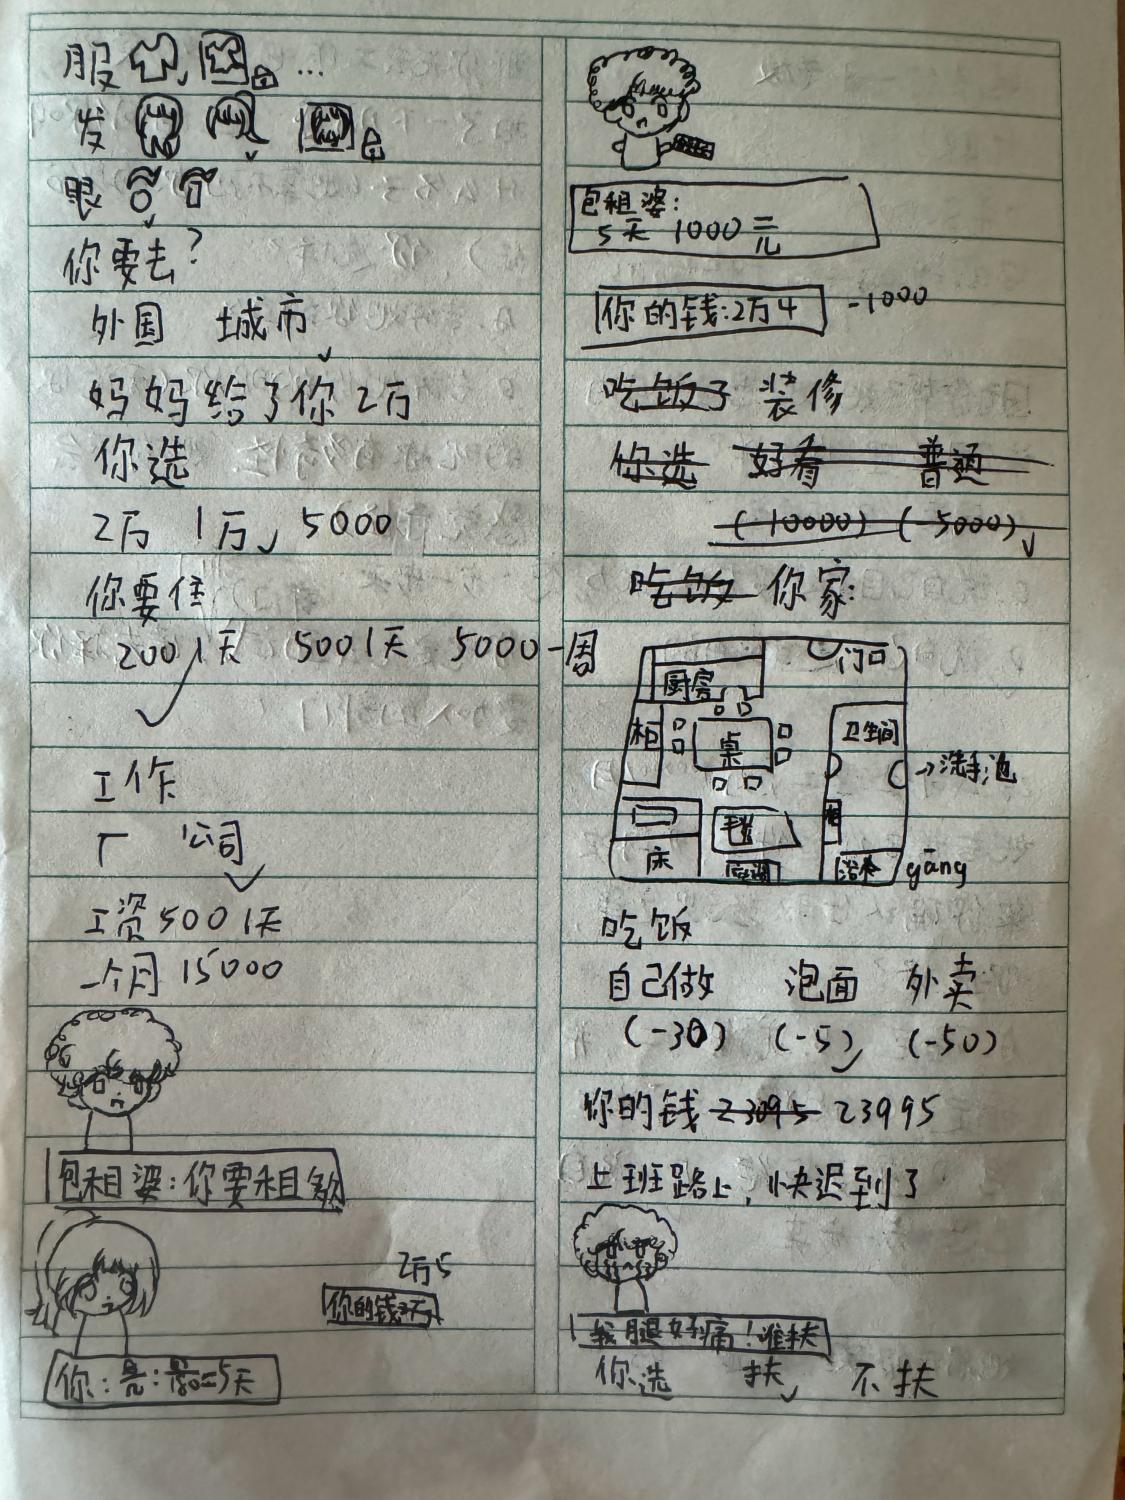 服 ...
发
眼
你要去？
外国 城市
妈妈给了你2万
你选
2万 1万 5000
你要住
200 1天 500 1天 5000一周
工作
厂 公司
工资500 1天
一个月 15000
包租婆：你要租
2万5
你的钱
你： =5天
包租婆：
5天 1000元
你的钱：2万4 -1000
吃饭了 装修
你选 好看 普通
(-10000) (-5000)
吃饭 你家：
门口
厨房
柜 桌 卫生间
→洗手池
毛毯
床 浴 gāng
吃饭
自己做 泡面 外卖
(-30) (-5) (-50)
你的钱 23095 23995
上班路上，快迟到了
我腿好痛！谁扶
你选 扶 不扶